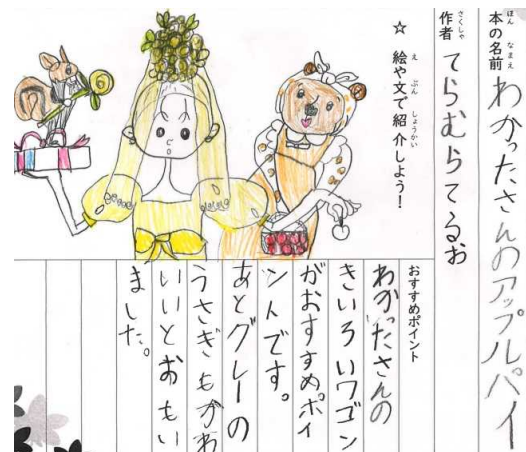 ほん なまえ
本の名前 わかったさんのアップルパイ
さくしゃ
作者 てらむらてるお
え ぶん しょうかい
☆ 絵や文で紹介しよう!
おすすめポイント
わかったさんの
きいろいワゴン
がおすすめポイ
ントです。
あとグレーの
うさぎもかわ
いいとおもい
ました。